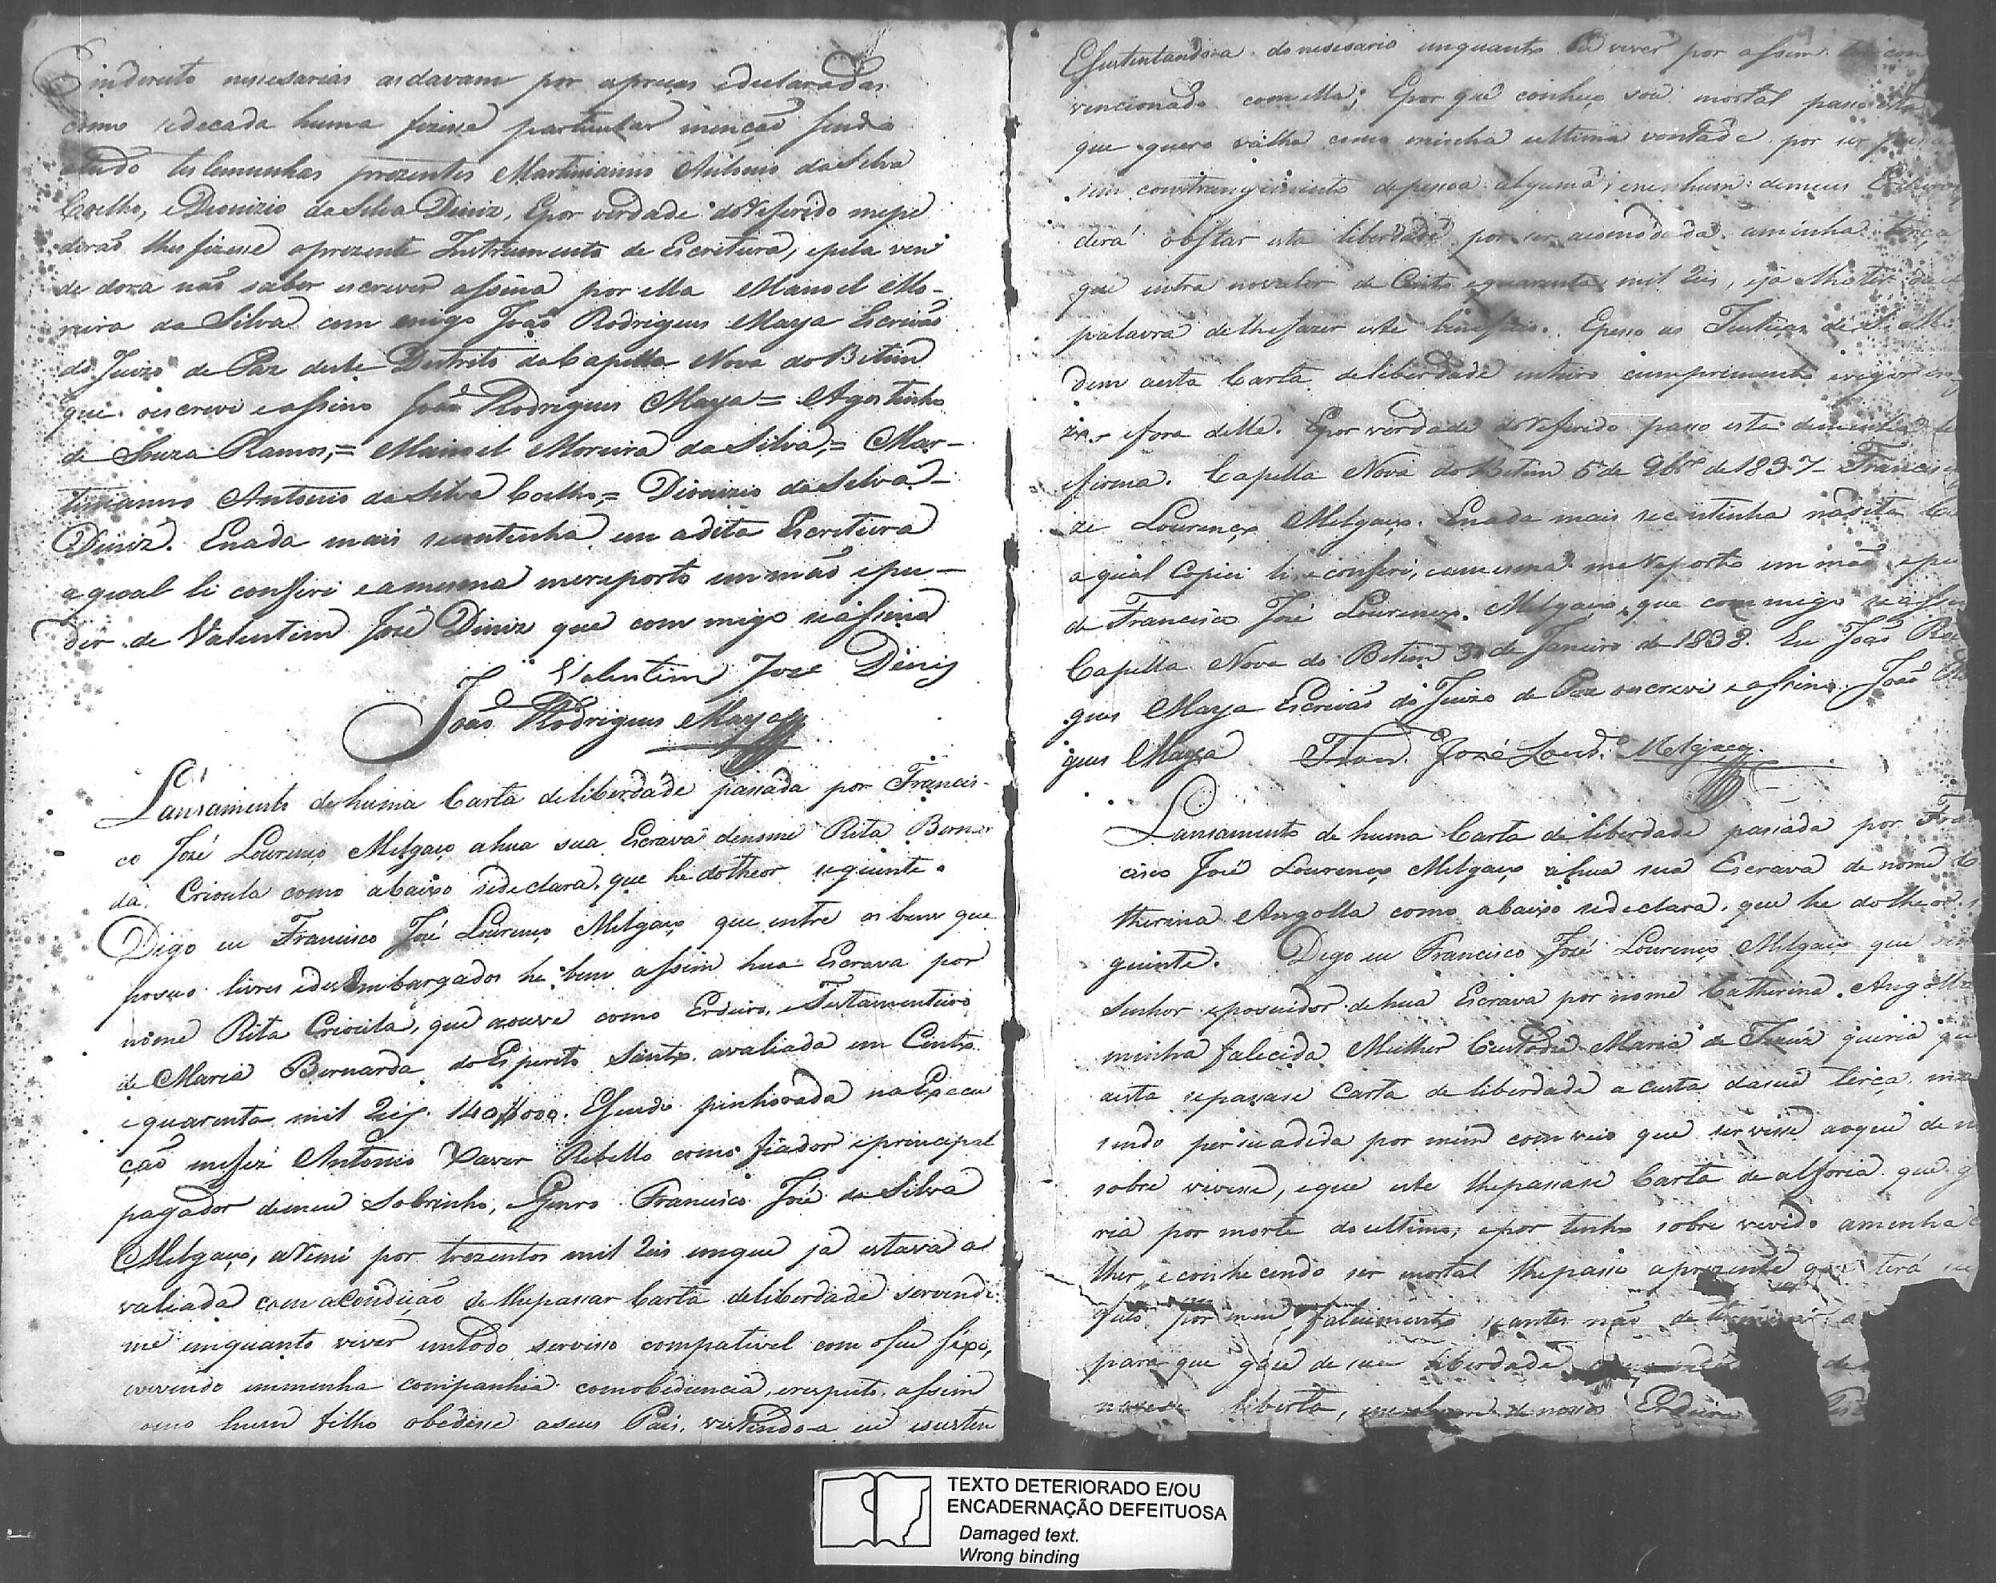 em direito nesesarias as davam por expreças e declaradas
como se de cada huma fizese particular menção sendo
a tudo testemunhas prezentes Martinianno Antonio da Silva
Coelho, e Dionizio da Silva Diniz, E por verdade do Referido me pe
dirão lhes fizese o prezente Instrumento de Escritura, e pela ven
de dora não saber escrever asina por ella Manoel Mo-
reira da Silva com migo João Rodrigues Maya Escrivão
do Juizo de Paz deste Destrito da Capella Nova do Betim
que o escrevi e assino João Rodrigues Maya = Agostinho
de Souza Ramos, = Manoel Moreira da Silva, = Mar-
tinianno Antonio da Silva Coelho, = Dionizio da Silva
Diniz. E nada mais se continha em a dita Escritura
a qual li conferi e a mesma me reporto em mão e pu-
der de Valentim José Diniz que com migo se assina
Valentim Joze Deniz
João Rodrigues Maya
Lansamento de huma Carta de liberdade passada por Francis-
co José Lourenço Milgaço a hua sua Escrava de nome Rita Bernar
da Crioula como abaixo se declara, que he do theor seguinte.
Digo eu Francisco José Lourenço Milgaço que entre os bens que
posuo livres e desembargados he bem assim hua Escrava por
nome Rita Crioula, que a ouve como Erdeiro, e Testamenteiro
de Maria Bernarda do Esperito Santo avaliada em Cento
e quarenta mil Reis 140$000. E sendo pinhorada na Execu
ção me fez Antonio Xaver Rebello como fiador e principal
pagador de meu Sobrinho, e Genro Francisco José da Silva
Milgaço, a Remi por trezentos mil Reis em que já estava a
valiada com a Condição de lhe passar Carta de liberdade servindo
me emquanto viver em todo serviso compativel com o seu sexo,
vivendo em minha companhia com obediencia, e respeito, assim
como hum filho obedese a seus Pais, vestindo-a eu e susten
E sustentandoa do nesesario emquanto eu viver por assim ter con
vencionado com ella; E por que conheço sou mortal passo esta
que quero valha como minha ultima vontade por ser passada
sem constrangimento de pessoa alguma; e nenhum de meus Erdeiros
derá obstar esta liberdade por ser acomodada a minha terça
que entra no valor de Cento e quarenta mil Reis, e já lhe ter dado
palavra de lhe fazer este beneficio. E peso as Justiças de S. M.
dem a esta Carta de liberdade inteiro cumprimento e vigor em
zo e fora delle. E por verdade do Referido passo esta de minha le
e firma. Capella Nova do Betim 5 de 9br.º de 1837 Francisco
ze Lourenço Milgaço. E nada mais se continha na dita Ca
a qual Copiei li e conferi, e a mesma me Reporto em mão e pu
de Francisco José Lourenço Milgaço, que com migo se assi
Capella Nova do Betim 30 de Janeiro de 1838. Eu João Ro
gues Maya Escrivão do Juizo de Paz o escrevi e assino. João Ro
gues Maya Fran. José Lour.º Melgaço
Lansamento de huma Carta de liberdade passada por Fra
cisco José Lourenço Milgaço a hua sua Escrava de nome Ca
therina Angolla como abaixo se declara, que he do theor se
guinte. Digo eu Francisco José Lourenço Milgaço que sou
Senhor e posuidor de hua Escrava por nome Catherina Angolla
minha falecida Mulher Custodia Maria de Jezuz queria que
a esta se pasase Carta de liberdade a custa da sua terça, mas
sendo persuadida por mim com veio que servise ao que de nos
sobre vivese, e que este lhe pasase Carta de alforia que go
ria por morte do ultimo, e por tenho sobre vivido a minha
lher, e conhecendo ser mortal lhe passo a prezente que terá
feito por meu falecimento e antes não
para que goze de sua liberdade
liberta, de nossos Erdeiros